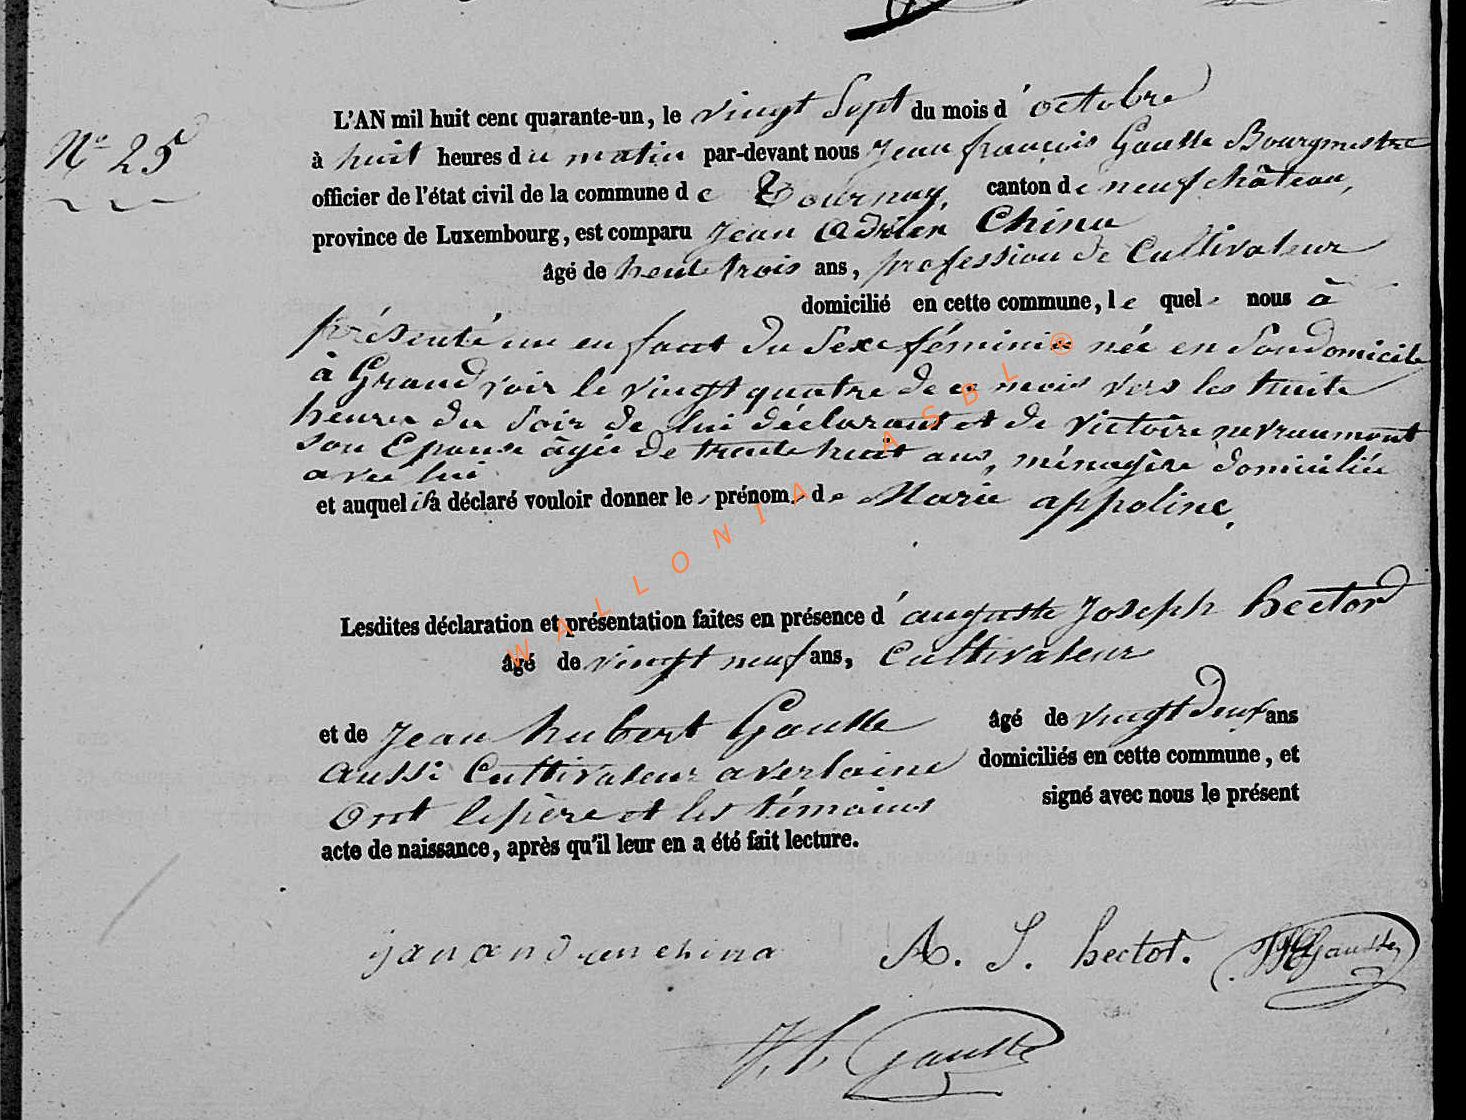 Nº 25
L'AN mil huit cent quarante-un, le vingt Sept du mois d'octobre
à huit heures du matin par-devant nous Jean françois Gauffe Bourgmestre
officier de l'état civil de la commune de Tournay, canton de neufchâteau,
province de Luxembourg, est comparu Jean Adrien China
âgé de trente trois ans, profession de Cultivateur
domicilié en cette commune, lequel nous à
présenté un enfant du Sexe féminin née en Son domicile
à Grandvoir le vingt quatre de ce mois vers les huite
heures du Soir de lui déclarant et de victoire nevraumont
son Epouse âgée de trente huit ans, ménagère domiciliée
avec lui
et auquel il a déclaré vouloir donner le prénom de Marie appoline,
Lesdites déclaration et présentation faites en présence d'auguste Joseph hector
âgé de vingt neuf ans, Cultivateur
et de Jean hubert Gauffe âgé de vingt deux ans
aussi Cultivateur a verlaine domiciliés en cette commune, et
Ont le père et les témoins signé avec nous le présent
acte de naissance, après qu'il leur en a été fait lecture.
WALLONIA ASBL ®
china A. J. hector. JH Gauffe
J. f. Gauffe